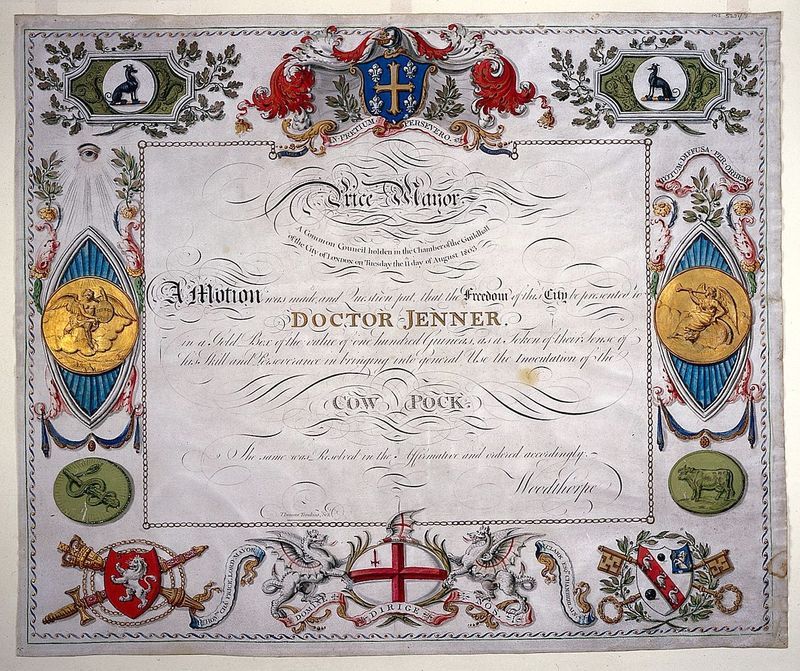 IN PRETIUM PERSEVERO
TOTUM DIFFUSA PER ORBEM
Price Mayor
A Common Council holden in the Chamber of the Guildhall
of the City of London on Tuesday the 11 day of August 1803
A Motion was made, and Question put, that the Freedom of this City be presented to
DOCTOR JENNER.
in a Gold Box of the value of one hundred Guineas, as a Token of their Sense of
his Skill and Perseverance in bringing into general Use the Inoculation of the
COW POCK.
The same was Resolved in the Affirmative and ordered accordingly.
Woodthorpe
Thomas Tomkins
PRICE LORD MAYOR
DOMINE DIRIGE NOS
CLARK ESQ CHAMBERLAIN